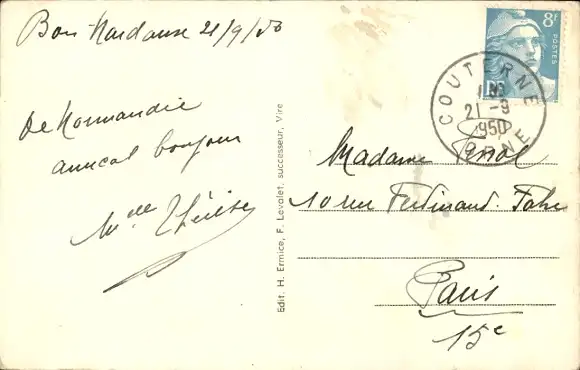 21/9/50
De Normandie
amical bonjour
Melle Thérèse
Edit. H. Ermice, F. Levalet, successeur, Vire
8F
POSTES
RF
COUTERNE
21 -9
1950
ORNE
Madame
10 rue Ferdinand. Fabre
Paris
15e